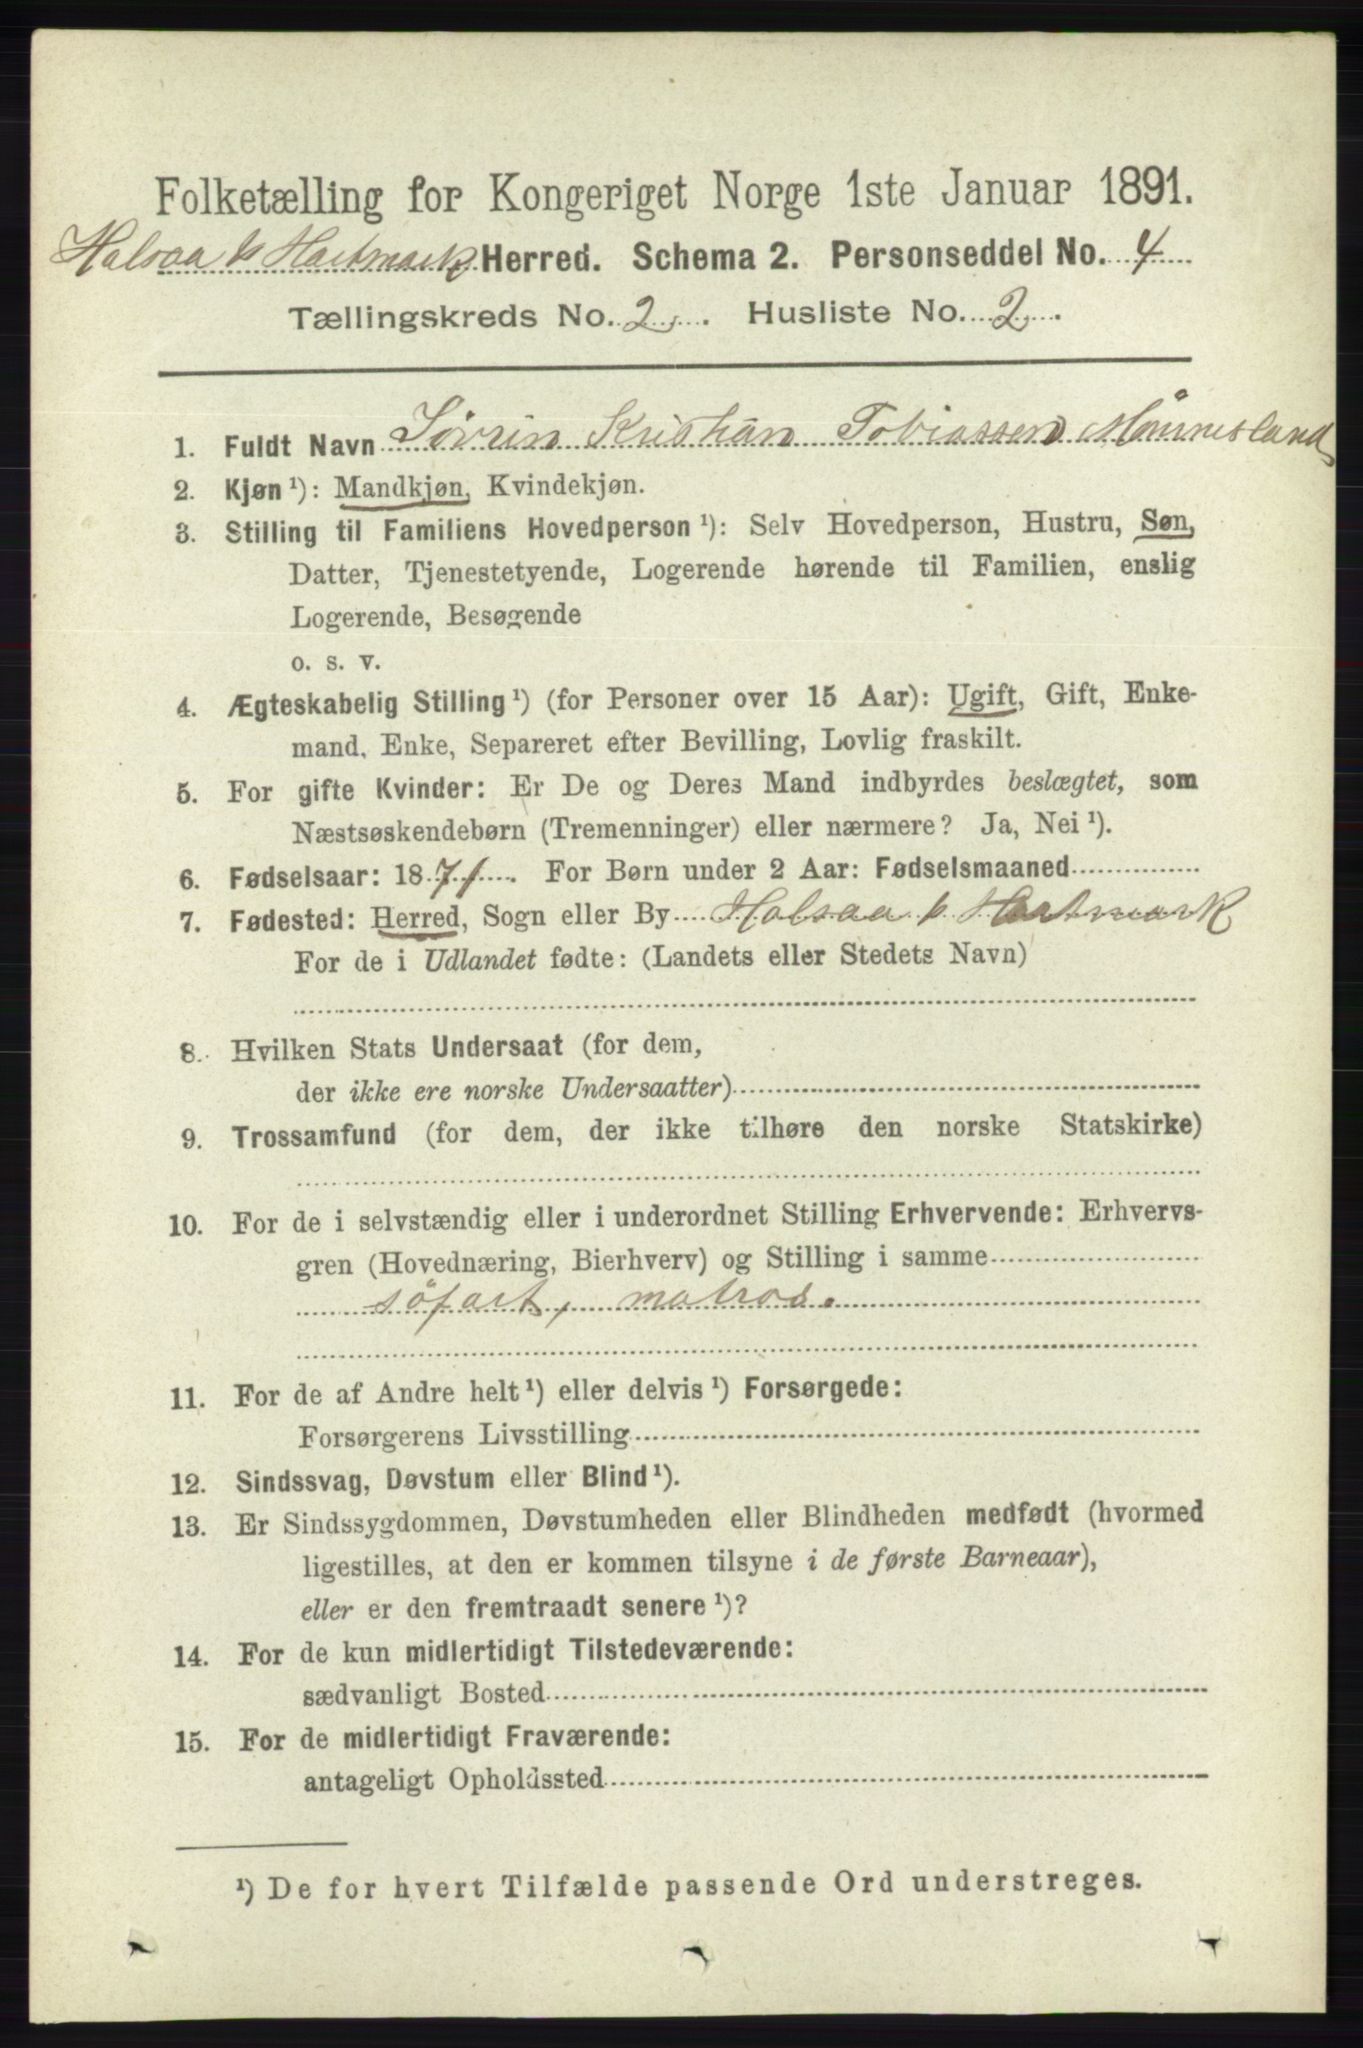 Folketælling for Kongeriget Norge 1ste Januar 1891.
Halsaa & Hartmark Herred. Schema 2. Personseddel No. 4
Tællingskreds No. 2. Husliste No. 2.
1. Fuldt Navn Sövrin Kristian Tobiassen Månnesland
2. Kjøn ¹): Mandkjøn, Kvindekjøn.
3. Stilling til Familiens Hovedperson ¹): Selv Hovedperson, Hustru, Søn,
Datter, Tjenestetyende, Logerende hørende til Familien, enslig
Logerende, Besøgende
o. s. v.
4. Ægteskabelig Stilling ¹) (for Personer over 15 Aar): Ugift, Gift, Enke-
mand, Enke, Separeret efter Bevilling, Lovlig fraskilt.
5. For gifte Kvinder: Er De og Deres Mand indbyrdes beslægtet, som
Næstsøskendebørn (Tremenninger) eller nærmere? Ja, Nei ¹).
6. Fødselsaar: 1871. For Børn under 2 Aar: Fødselsmaaned
7. Fødested: Herred, Sogn eller By Halsaa & Hartmark
For de i Udlandet fødte: (Landets eller Stedets Navn)
8. Hvilken Stats Undersaat (for dem,
der ikke ere norske Undersaatter)
9. Trossamfund (for dem, der ikke tilhøre den norske Statskirke)
10. For de i selvstændig eller i underordnet Stilling Erhvervende: Erhvervs-
gren (Hovednæring, Bierhverv) og Stilling i samme
söfart, matros.
11. For de af Andre helt ¹) eller delvis ¹) Forsørgede:
Forsørgerens Livsstilling
12. Sindssvag, Døvstum eller Blind ¹).
13. Er Sindssygdommen, Døvstumheden eller Blindheden medfødt (hvormed
ligestilles, at den er kommen tilsyne i de første Barneaar),
eller er den fremtraadt senere ¹)?
14. For de kun midlertidigt Tilstedeværende:
sædvanligt Bosted
15. For de midlertidigt Fraværende:
antageligt Opholdssted
¹) De for hvert Tilfælde passende Ord understreges.